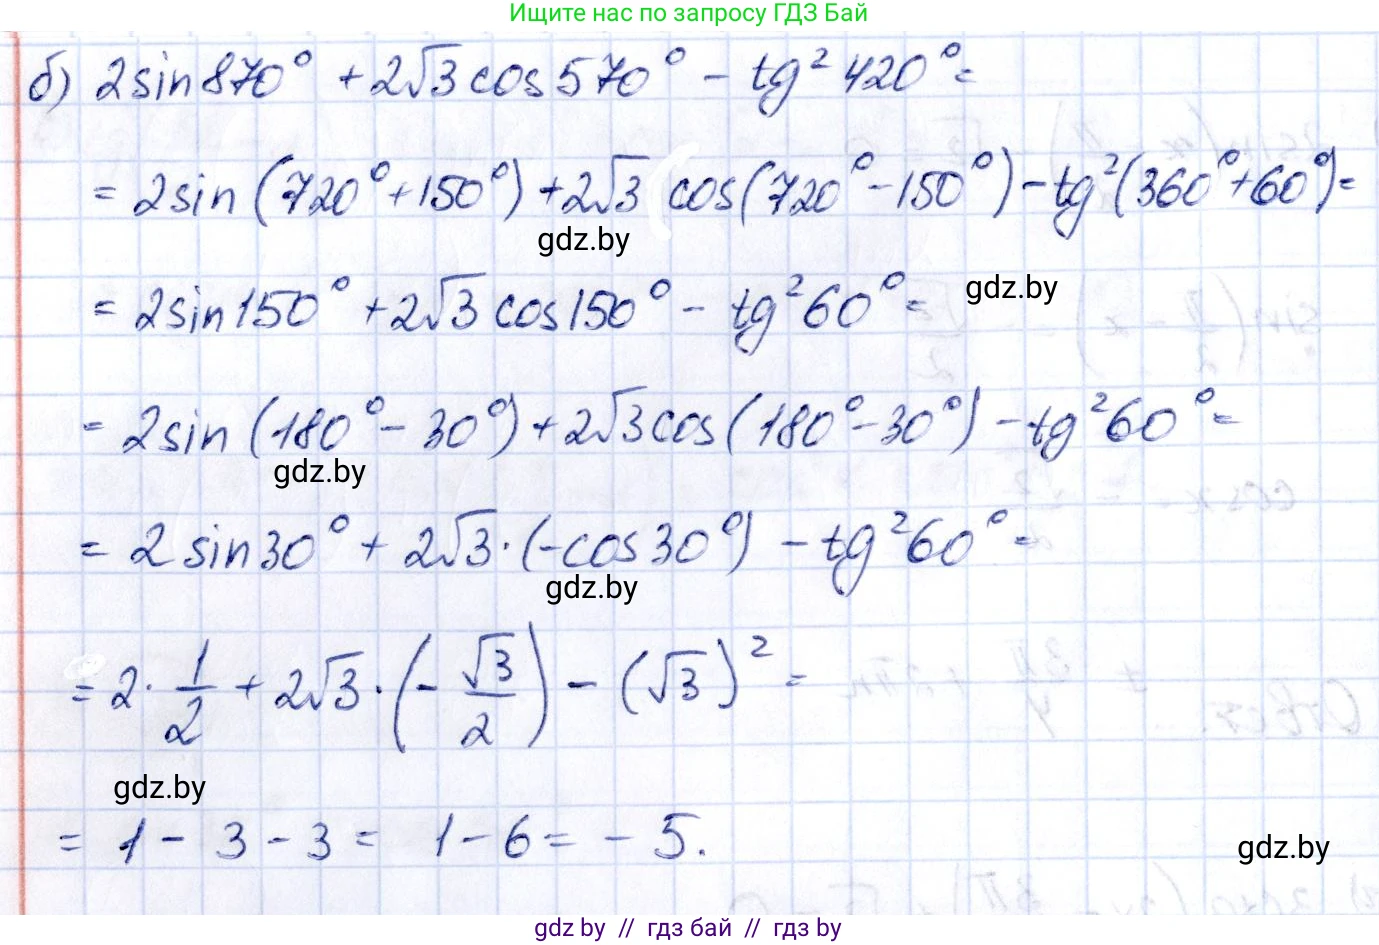 Ищите нас по запросу ГДЗ Бай
б) 2sin870° + 2√3cos570° - tg²420° =
= 2sin(720°+150°) + 2√3 cos(720°-150°) - tg²(360°+60°) =
gdz.by
= 2sin150° + 2√3cos150° - tg²60° =
gdz.by
= 2sin(180°-30°) + 2√3cos(180°-30°) - tg²60° =
gdz.by
= 2sin30° + 2√3·(-cos30°) - tg²60° =
gdz.by
= 2·1/2 + 2√3·(-√3/2) - (√3)² =
gdz.by
= 1 - 3 - 3 = 1 - 6 = -5.
gdz.by
gdz by // гдз бай // гдз by